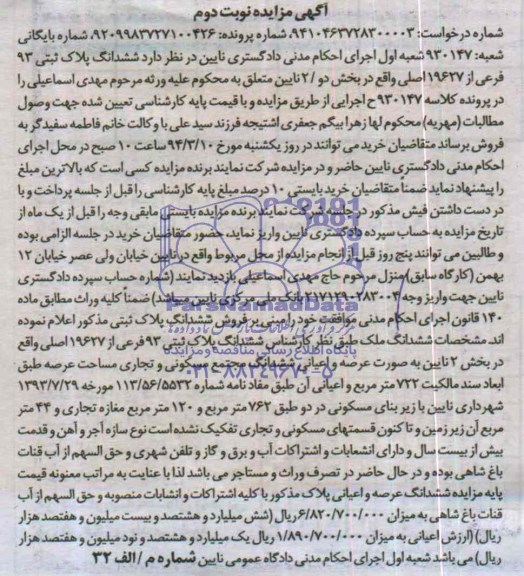 آگهی مزایده نوبت دوم
شماره درخواست: ۹۴۱۰۴۶۳۷۲۸۳۰۰۰۰۳، شماره پرونده: ۹۲۰۹۹۸۳۷۲۷۱۰۰۴۲۶، شماره بایگانی
شعبه: ۹۳۰۱۴۷ شعبه اول اجرای احکام مدنی دادگستری نایین در نظر دارد ششدانگ پلاک ثبتی ۹۳
فرعی از ۱۹۶۲۷ اصلی واقع در بخش دو / ۲ نایین متعلق به محکوم علیه ورثه مرحوم مهدی اسماعیلی را
در پرونده کلاسه ۹۳۰۱۴۷ ح اجرایی از طریق مزایده و با قیمت پایه کارشناسی تعیین شده جهت وصول
مطالبات (مهریه) محکوم لها زهرا بیگم جعفری اشتیجه فرزند سید علی با وکالت خانم فاطمه سفیدگر به
فروش برساند متقاضیان خرید می توانند در روز یکشنبه مورخ ۹۴/۳/۱۰ ساعت ۱۰ صبح در محل اجرای
احکام مدنی دادگستری نایین حاضر و در مزایده شرکت نمایند برنده مزایده کسی است که بالاترین مبلغ
را پیشنهاد نماید ضمناً متقاضیان خرید بایستی ۱۰ درصد مبلغ پایه کارشناسی را قبل از جلسه پرداخت و با
در دست داشتن فیش مذکور در جلسه شرکت نمایند برنده مزایده بایستی مابقی وجه را قبل از یک ماه از
تاریخ مزایده به حساب سپرده دادگستری نایین واریز نماید، حضور متقاضیان خرید در جلسه الزامی بوده
و طالبین می توانند پنج روز قبل از انجام مزایده از محل مربوط واقع در نایین خیابان ولی عصر خیابان ۱۲
بهمن (کارگاه سابق) منزل مرحوم حاج مهدی اسماعیلی بازدید نمایند (شماره حساب سپرده دادگستری
نایین جهت واریز وجه ۲۱۷۱۲۹۰۲۸۳۰۰۳ بانک ملی مرکزی نایین میباشد) ضمناً کلیه وراث مطابق ماده
۱۴۰ قانون اجرای احکام مدنی موافقت خود را مبنی بر فروش ششدانگ پلاک ثبتی مذکور اعلام نموده
اند مشخصات ششدانگ ملک طبق نظر کارشناس ششدانگ پلاک ثبتی ۹۳ فرعی از ۱۹۶۲۷ اصلی واقع
در بخش ۲ نایین به صورت عرصه و اعیانی ششدانگ مجتمع مسکونی و تجاری مساحت عرصه طبق
ابعاد سند مالکیت ۷۲۲ متر مربع و اعیانی آن طبق مفاد نامه شماره ۱۱۳/۵۶/۵۵۳۲ مورخه ۱۳۹۳/۷/۲۹
شهرداری نایین با زیر بنای مسکونی در دو طبق ۷۶۲ متر مربع و ۱۲۰ متر مربع مغازه تجاری و ۴۴ متر
مربع آن زیر زمین و تا کنون قسمتهای مسکونی و تجاری تفکیک نشده است نوع سازه آجر و آهن و قدمت
بیش از بیست سال و دارای انشعابات و اشتراکات آب و برق و گاز و تلفن شهری و حق السهم از آب قنات
باغ شاهی بوده و در حال حاضر در تصرف وراث و مستاجر می باشد لذا با عنایت به مراتب معنونه قیمت
پایه مزایده ششدانگ عرصه و اعیانی پلاک مذکور با کلیه اشتراکات و انشابات منصوبه و حق السهم از آب
قنات باغ شاهی به میزان ۶/۸۲۰/۷۰۰/۰۰۰ ریال (شش میلیارد و هشتصد و بیست میلیون و هفتصد هزار
ریال) (ارزش اعیانی به میزان ۱/۸۹۰/۷۰۰/۰۰۰ ریال یک میلیارد و هشتصد و نود میلیون و هفتصد هزار
ریال) می باشد شعبه اول اجرای احکام مدنی دادگاه عمومی نایین شماره م / الف ۳۲
ParsNamadData
پایگاه اطلاع رسانی مناقصه و مزایده
۰۲۱-۸۸۳۴۹۶۷۰-۵